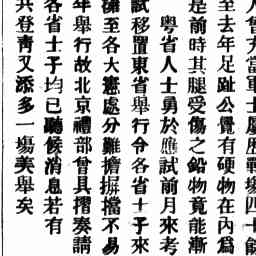 人曾方當軍士屢歷戰場四十餘
至去年足趾公覺有硬物在內爲
是前時其腿受傷之鉛物竟能漸
粵省人士勇於應試前月來考
試移置東省舉行令各省士子來
至各大憲處分難擔摒擋不易
年舉行故北京禮部曾具摺奏請
各省士子均已聽候消息若有
共登靑又添多一塲美舉矣